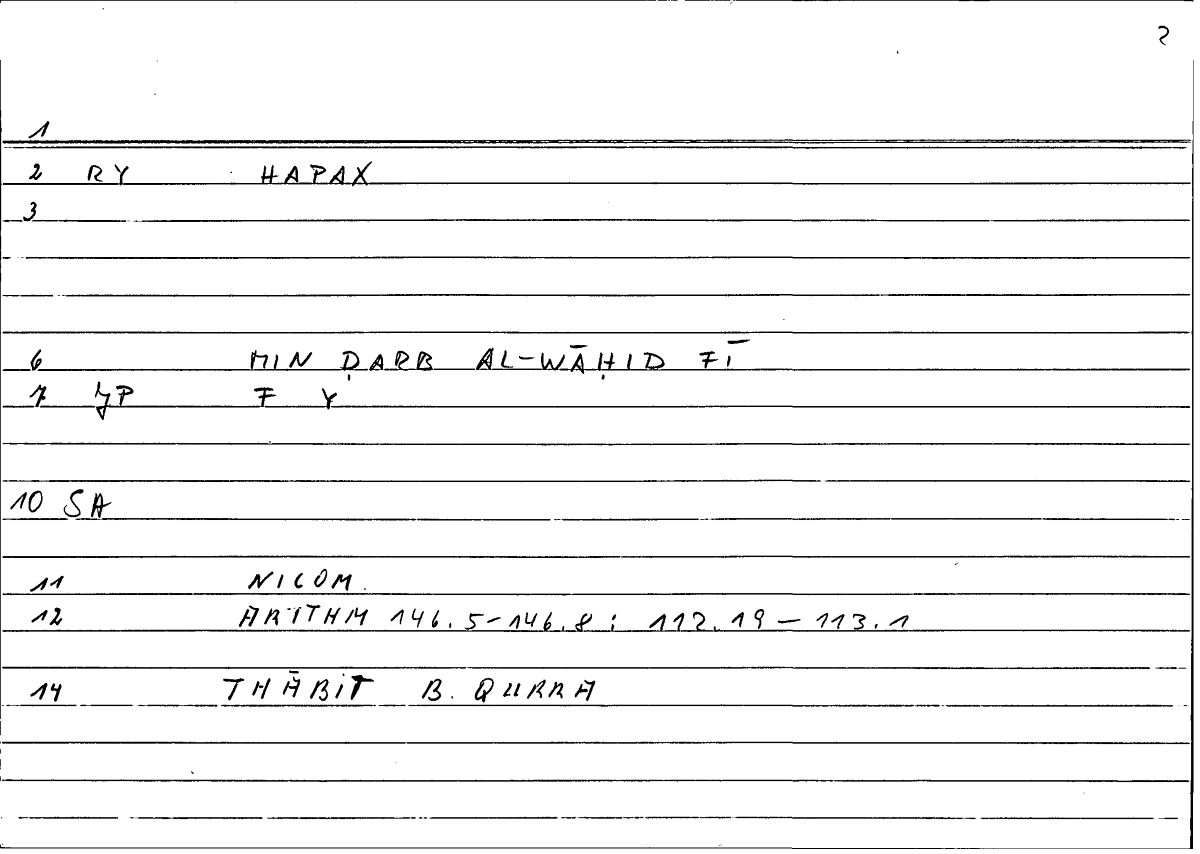 2
1
2 RY HAPAX
3
6 MIN ḌARB AL-WĀḤID FĪ
7 JP F Y
10 SA
11 NICOM.
12 ARITHM 146.5-146.8: 112.19 – 113.1
14 THĀBIT B. QURRA